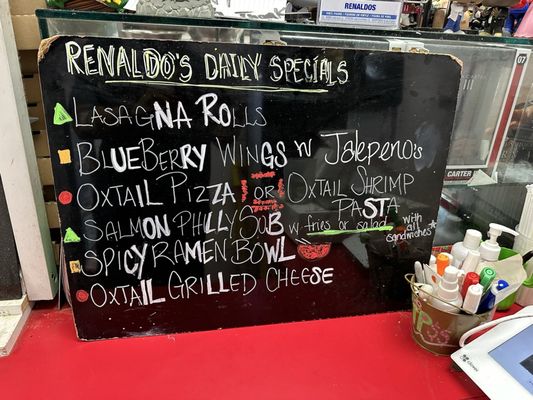 RENALDOS
RENALDO'S DAILY SPECIALS
LASAGNA ROLLS
BLUEBERRY WINGS W JALEPENO'S
OXTAIL PIZZA OR OXTAIL SHRIMP PASTA
SALMON PHILLY SUB W fries or salad with all sandwiches*
SPICY RAMEN BOWL
OXTAIL GRILLED CHEESE
CARTER III
07
CARTER
CARTER